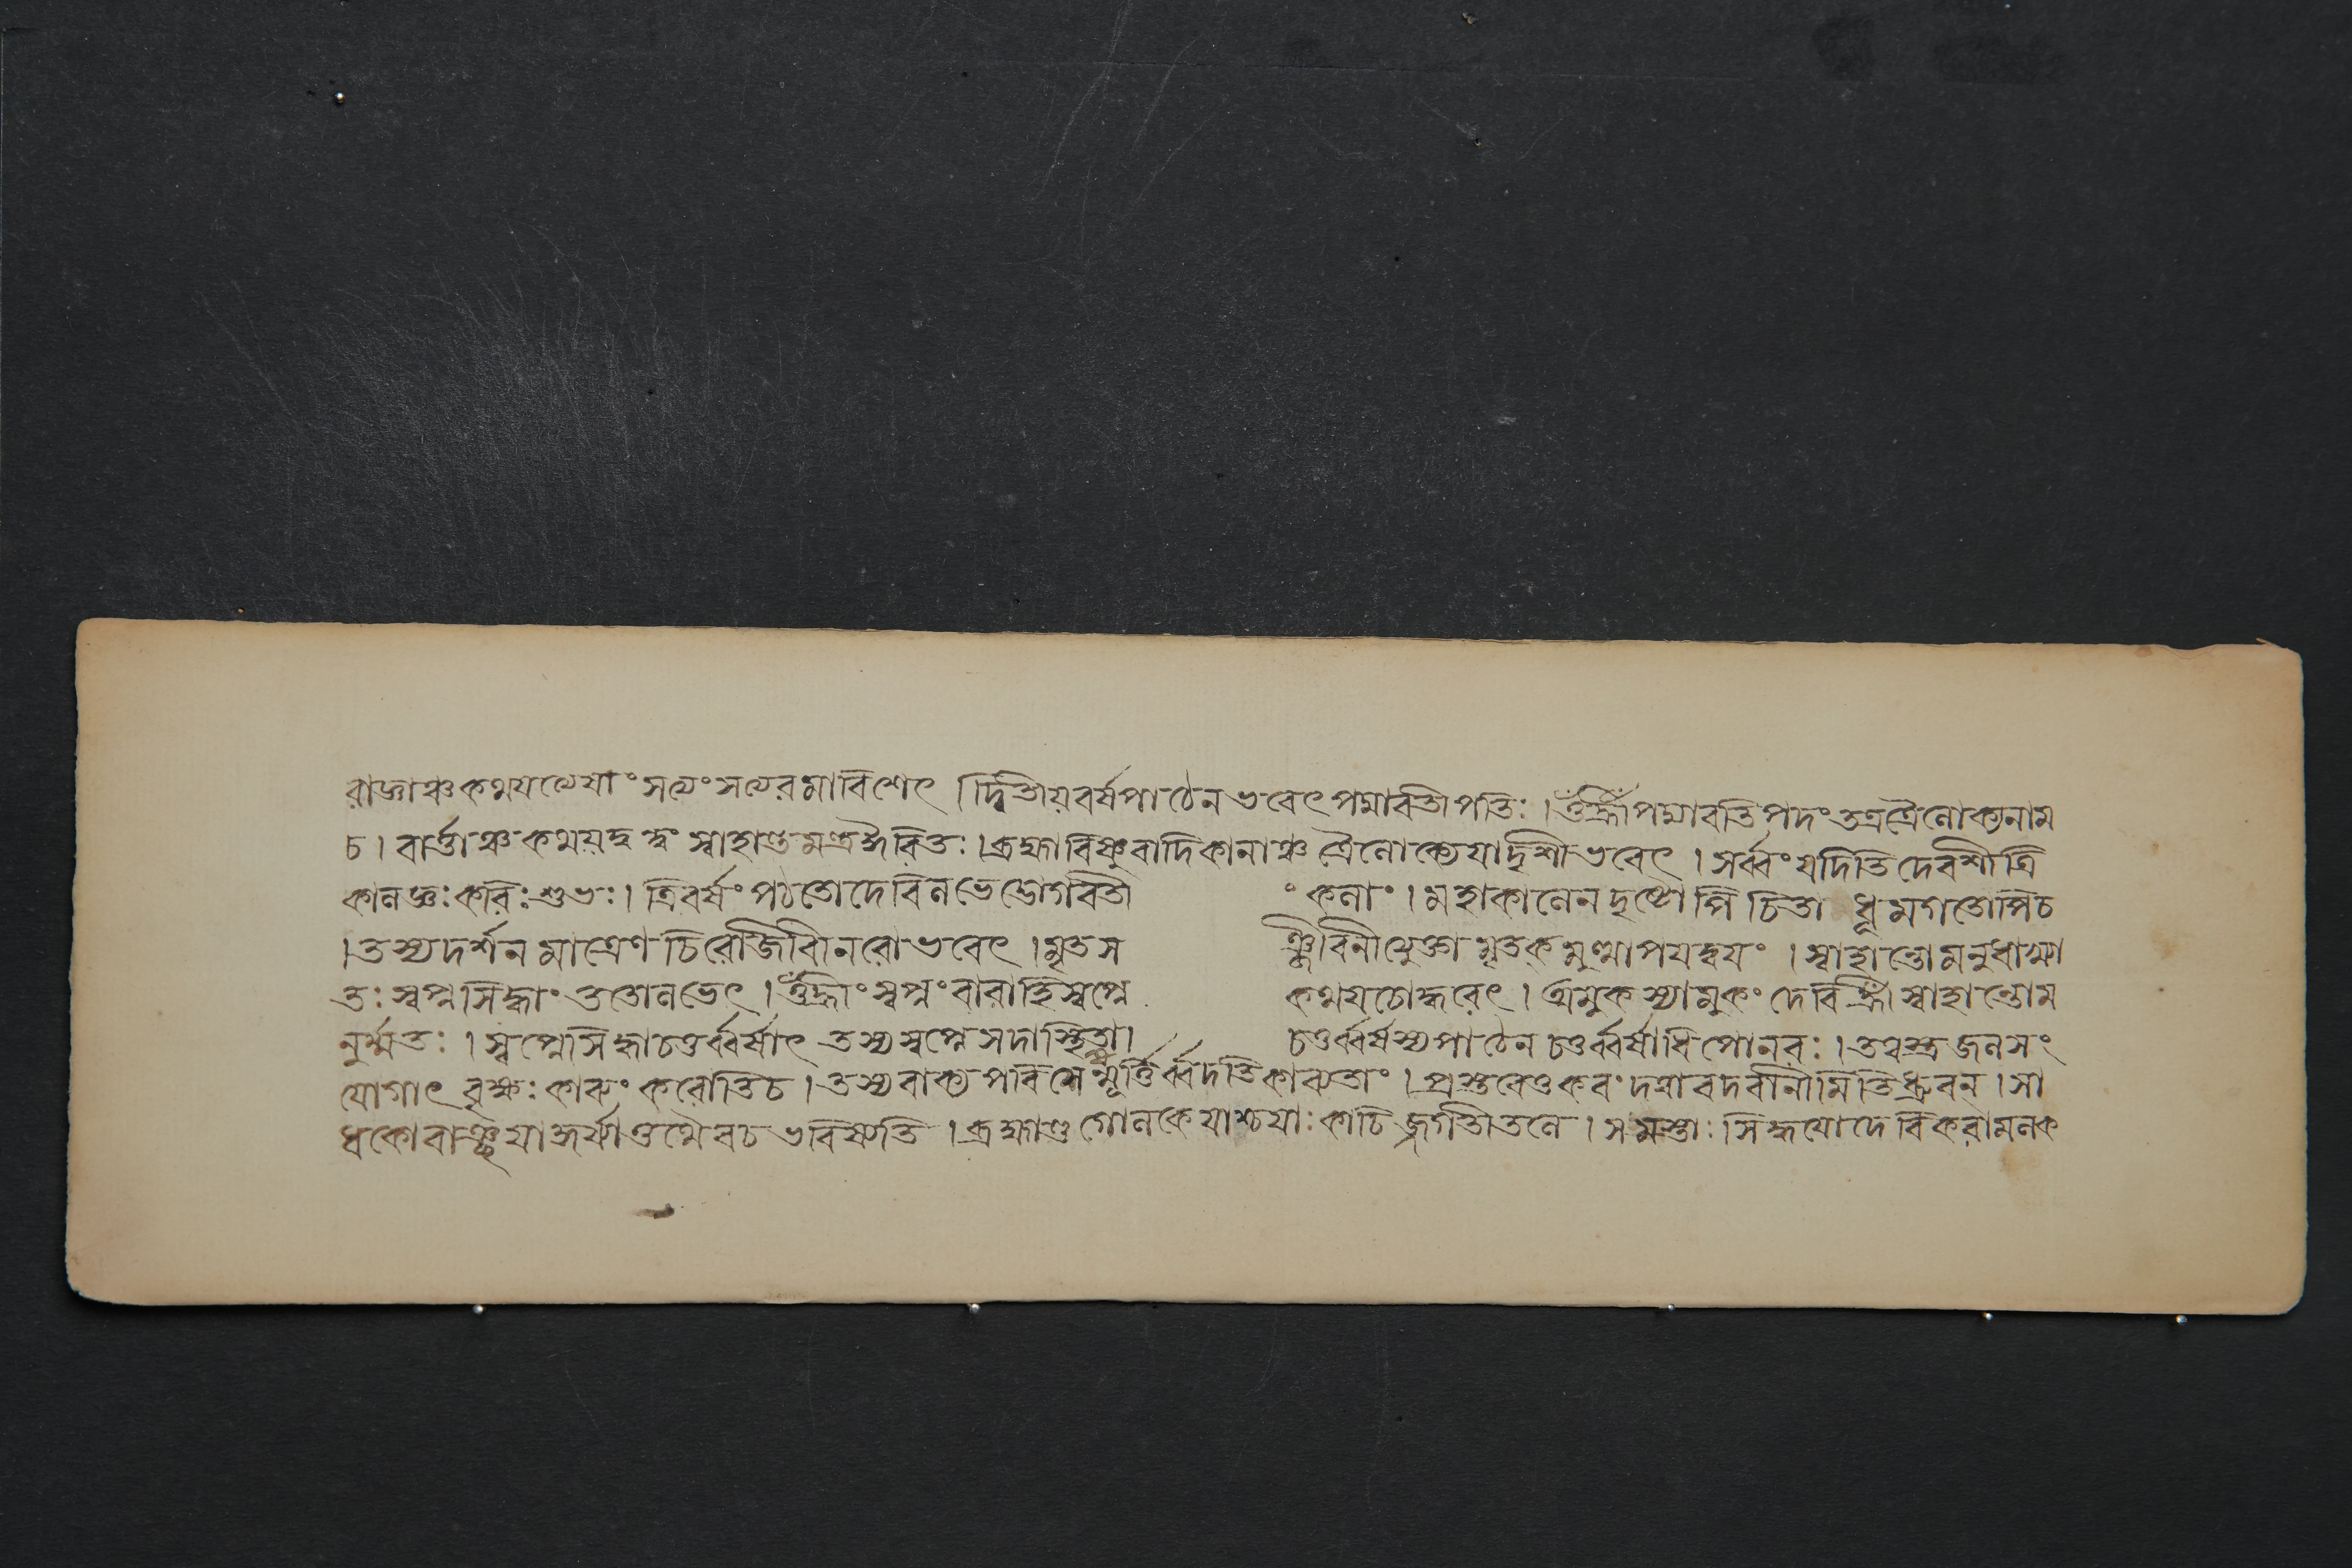 রাজ্ঞাঞ্চ কথয়থেয়াং সত্যং সত্যেরমাবিশেৎ । দ্বিতীয়বর্ষপাঠেন ভবেৎ পদ্মাবতীপতিঃ । ওঁ হ্রীঁ পদ্মাবতি পদং তত্র ত্রৈলোক্যনাম
চ । বার্ত্তাঞ্চ কথয়দ্বন্দ্বং স্বাহান্ত মন্ত্র ঈরিতঃ । ব্রহ্মাবিষ্ণুবাদিকানাঞ্চ ত্রৈলোক্যে যাদৃশী ভবেৎ । সর্ব্বং বদতি দেবেশী ত্রি
কালজ্ঞঃ কবিঃ শুভঃ । ত্রিবর্ষং পঠতো দেবি লভেদ্ভোগবতী
ং কলাং । মহাকালেন দৃষ্টোপি চিতা ধূমগতোপি চ
। তস্য দর্শন মাত্রেণ চিরঞ্জীবী নরো ভবেৎ । মৃতস
ঞ্জিবিনীত্যুক্তা মৃতকমুত্থাপয়দ্বয়ং । স্বাহান্তো মনুরাখ্যা
তঃ স্বপ্নসিদ্ধাং ততো লভেৎ । ওঁ হ্রীং স্বপ্নং বারাহি স্বপ্নে
কথয়ঠোদ্ধরেৎ । অমুকস্যামুকং দেবি হ্রীঁ স্বাহান্তো ম
নুর্ম্মতঃ । স্বপ্নে সিদ্ধা চতুর্ব্বর্ষাৎ তস্য স্বপ্নে সদাস্থিতা ।
চতুর্ব্বর্ষস্য পাঠেন চতুর্ব্বর্ষাধিপো নরঃ । তদ্বস্ত্র জলসং
যোগাৎ মূর্খঃ কাব্যং করোতি চ । তস্য বাক্য পরিচয়ান্মূর্ত্তির্ব্বদতি কাব্যতাং । প্রস্তবেণ্ড করং দত্ত্বা বদ বানীমিতি ব্রুবন্ । সা
ধকো বাঞ্ছয়া কুর্য্যাত্তত্তথৈব চ ভবিষ্যতি । ব্রহ্মাণ্ড গোলকে যাশ্চ যাঃ কাচিজ্জগতীতলে । সমস্তাঃ সিদ্ধয়ো দেবি করামলক